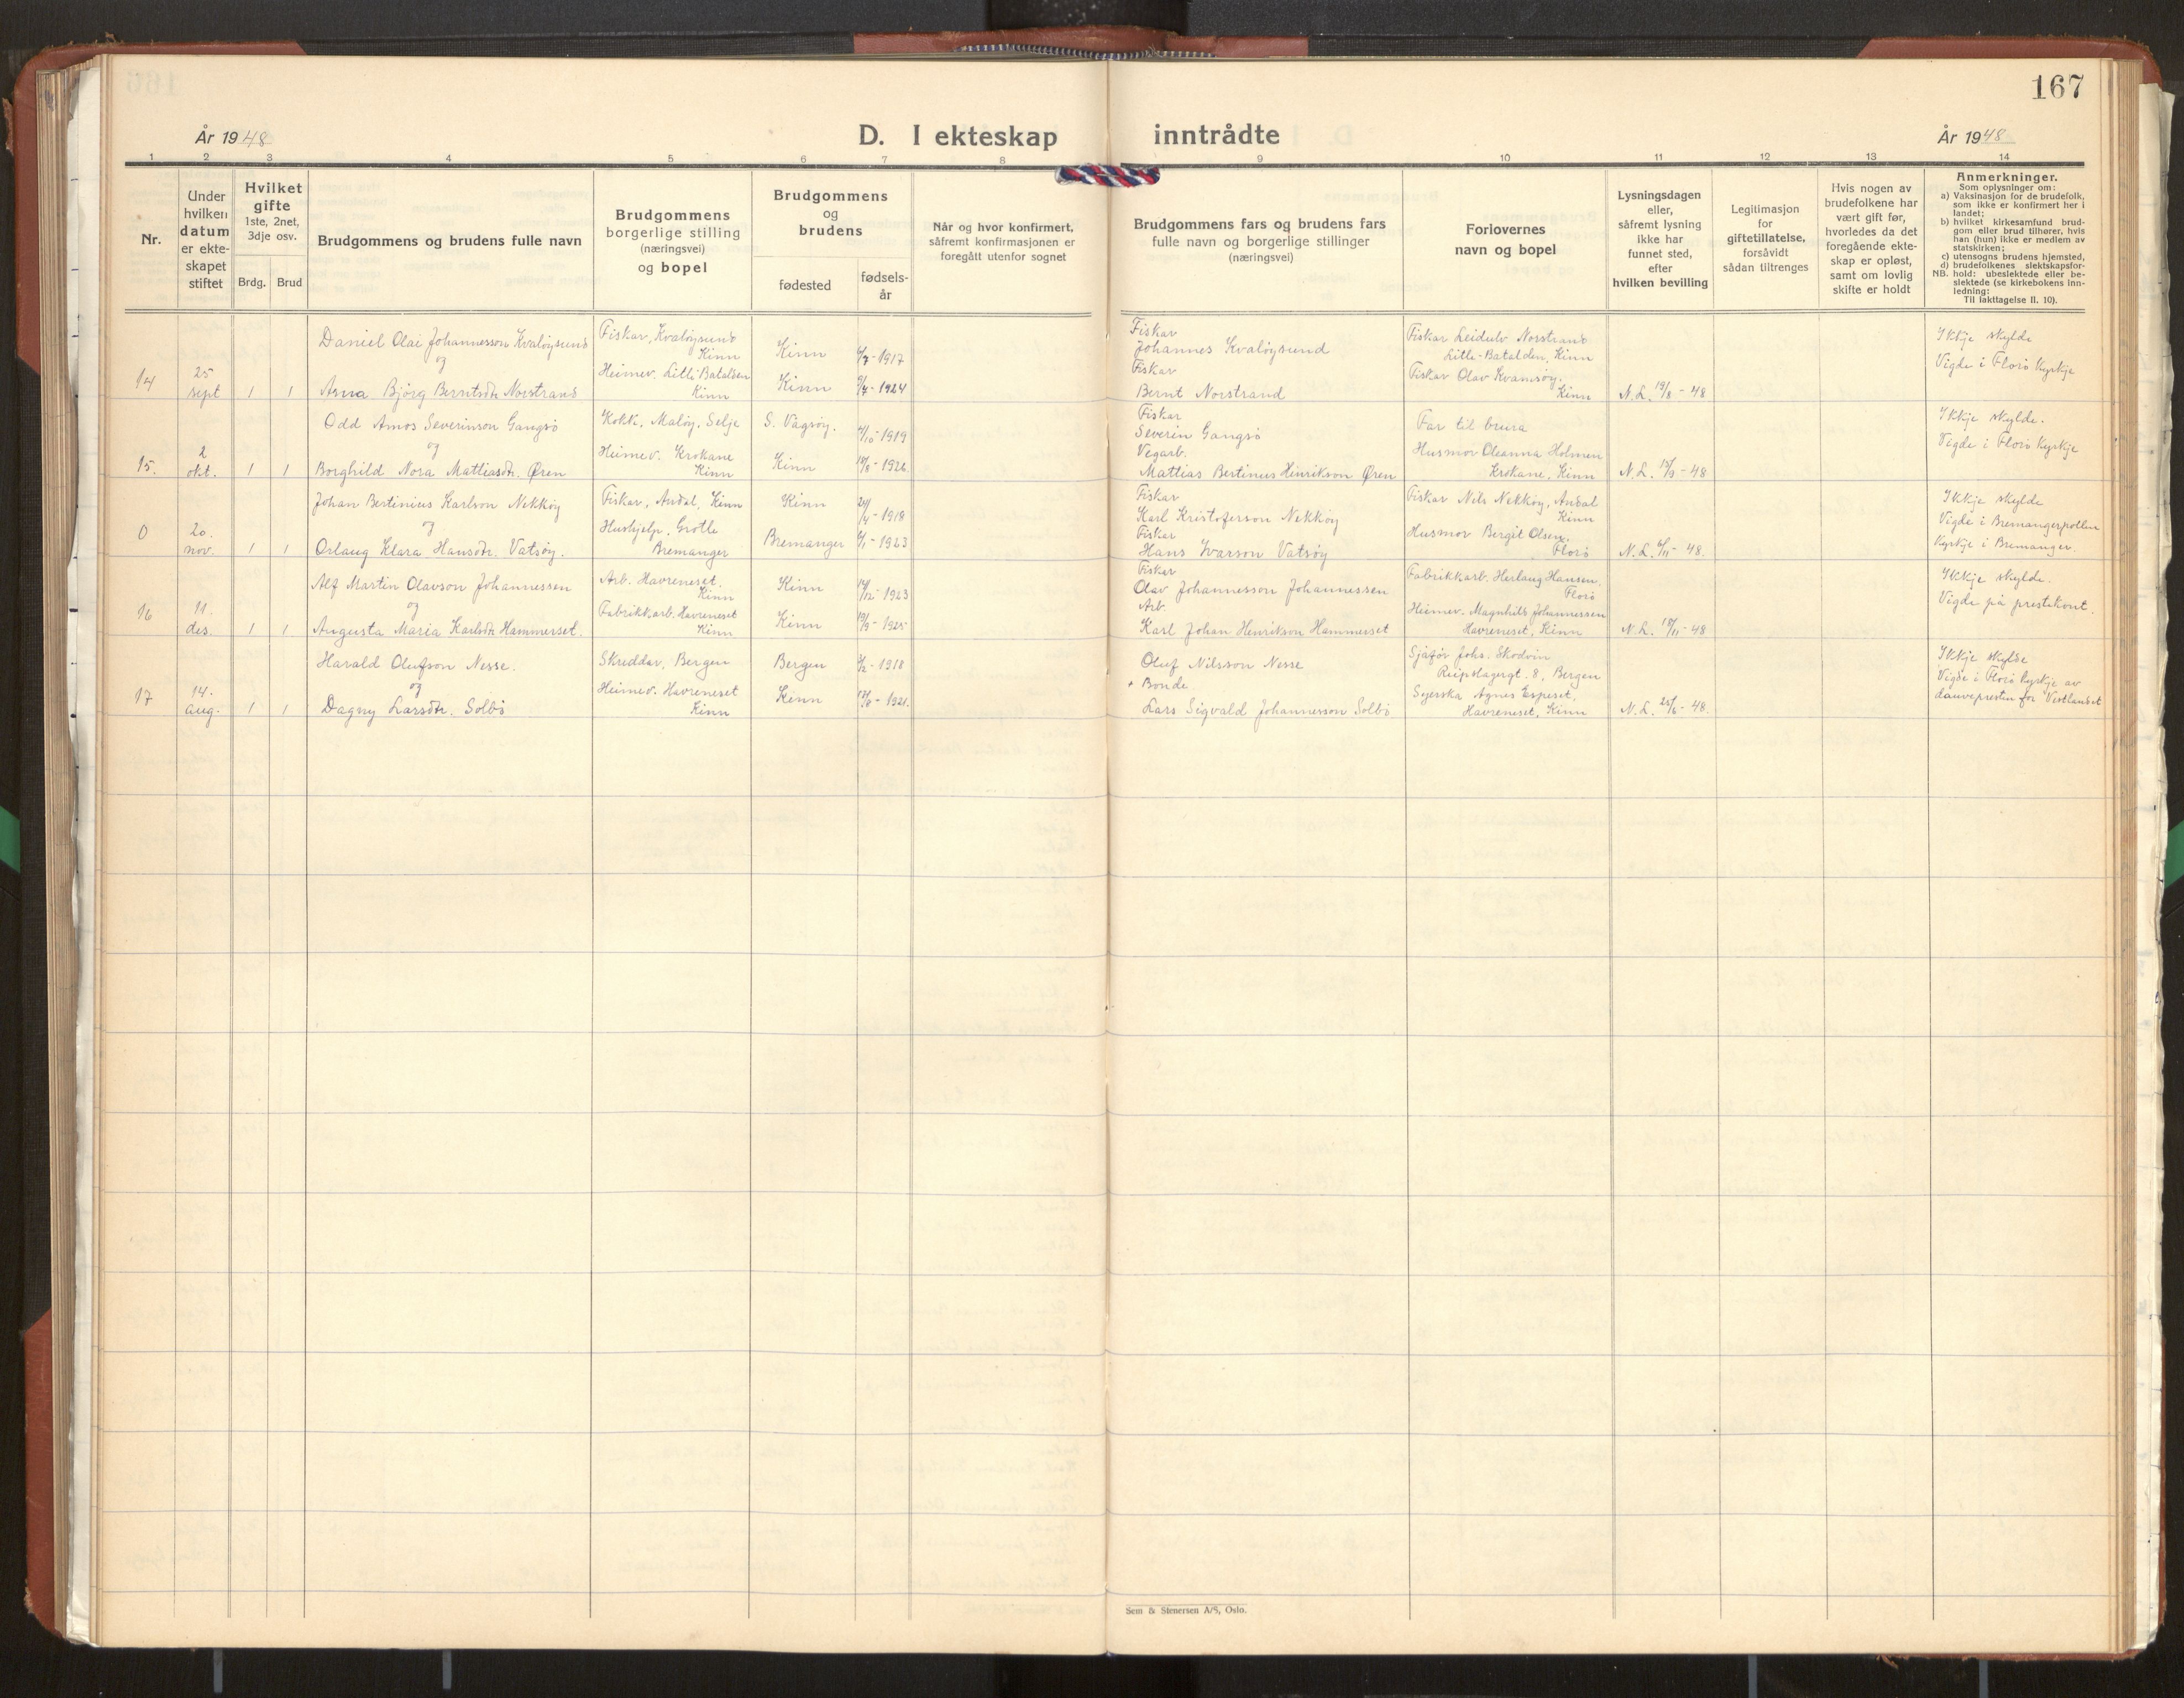 167
År 1948
D. I ekteskap inntrådte
År 1948
1 2 3 4 5 6 7 8 9 10 11 12 13 14
Nr.
Under
hvilken
datum
er ekte-
skapet
stiftet
Hvilket
gifte
1ste, 2net,
3dje osv.
Brdg. Brud
Brudgommens og brudens fulle navn
Brudgommens
borgerlige stilling
(næringsvei)
og bopel
Brudgommens
og
brudens
fødested
fødsels-
år
Når og hvor konfirmert,
såfremt konfirmasjonen er
foregått utenfor sognet
Brudgommens fars og brudens fars
fulle navn og borgerlige stillinger
(næringsvei)
Forlovernes
navn og bopel
Lysningsdagen
eller,
såfremt lysning
ikke har
funnet sted,
efter
hvilken bevilling
Legitimasjon
for
giftetillatelse,
forsåvidt
sådan tiltrenges
Hvis nogen av
brudefolkene har
vært gift før,
hvorledes da det
foregående ekte-
skap er opløst,
samt om lovlig
skifte er holdt
Anmerkninger.
Som oplysninger om:
a) Vaksinasjon for de brudefolk,
som ikke er konfirmert her i
landet;
b) hvilket kirkesamfund brud-
gom eller brud tilhører, hvis
han (hun) ikke er medlem av
statskirken;
c) utensogns brudens hjemsted,
d) brudefolkenes slektskapsfor-
NB. hold: ubeslektede eller be-
slektede (se kirkebokens inn-
ledning:
Til iakttagelse II. 10).
14
25
sept
1 1
Daniel Olai Johannesson Kvaløysund
og
Asna Bjørg Berntsdtr Norstrand
Fiskar, Kvaløysund
Kinn
Heimev. Litli Batalden
Kinn
Kinn
-1917
Kinn
-1924
Fiskar
Johannes Kvaløysund
Fiskar
Bernt Norstrand
Fiskar Leidulv Norstrand
Litle-Batalden, Kinn
Fiskar Olav Kvamsøy.
Kinn
N.L. 19/8 - 48
Ikkje skylde
Vigde i Florø Kyrkje
15.
2
okt.
1 1
Odd Amos Severinson Gangsø
og
Borghild Nora Mattiasdtr. Øren
Kokk, Maløy, Selje
Heimev. Krokane
Kinn
S. Vågsøy.
/10-1919
Kinn
-1926
Fiskar
Severin Gangsø
Vegarb.
Mattias Bertinus Henrikson Øren
Far til brura
Husmor Oleanna Holmen
Krokane, Kinn
N.L. 15/9 - 48
Ikkje skylde.
Vigde i Florø Kyrkje
0
20.
nov.
1 1
Johan Bertinius Karlson Nekkøy
og
Orlaug Klara Hansdtr. Vatsøy.
Fiskar, Andal, Kinn
Hushjelp, Grotle
Bremanger
Kinn
24/4-1918
Bremanger
-1923
Fiskar
Karl Kristoferson Nekkøy
Fiskar
Hans Ivarson Vatsøy
Fiskar Nils Nekkøy, Andal
Kinn
Husmor Bergit Olsen.
Florø
N.L. 6/11 - 48.
Ikkje skylde
Vigde i Bremangerpollen
Kyrkje i Bremanger.
16
11.
des.
1 1
Alf Martin Olavson Johannessen
og
Augusta Maria Karlsdtr Hammerset.
Arb. Havreneset.
Kinn
Fabrikkarb. Havreneset
Kinn
Kinn
14/12-1923
Kinn
19/9-1925
Fiskar
Olav Johannesson Johannessen
Arb.
Karl Johan Henrikson Hammerset
Fabrikkarb. Herlaug Hansen.
Florø
Heimev. Magnhild Johannessen
Havreneset, Kinn
N.L. 18/11 - 48
Ikkje skylde.
Vigde på prestekont.
17
14.
aug.
1 1
Harald Olufson Nesse.
og
Dagny Larsdtr. Solbø
Skreddar, Bergen
Heimev. Havreneset
Kinn
Bergen
-1918
Kinn
-1921.
Oluf Nilsson Nesse
+ Bonde
Lars Sigvald Johannesson Solbø
Sjåfør Johs. Skodvin
Reipslagergt. 8, Bergen
Syerska Agnes Espeset,
Havreneset, Kinn
N.L. 25/6 - 48.
Ikkje skylde
Vigde i Florø kyrkje av
dauvepresten for Vestlandet
Sem & Stenersen A/S, Oslo.